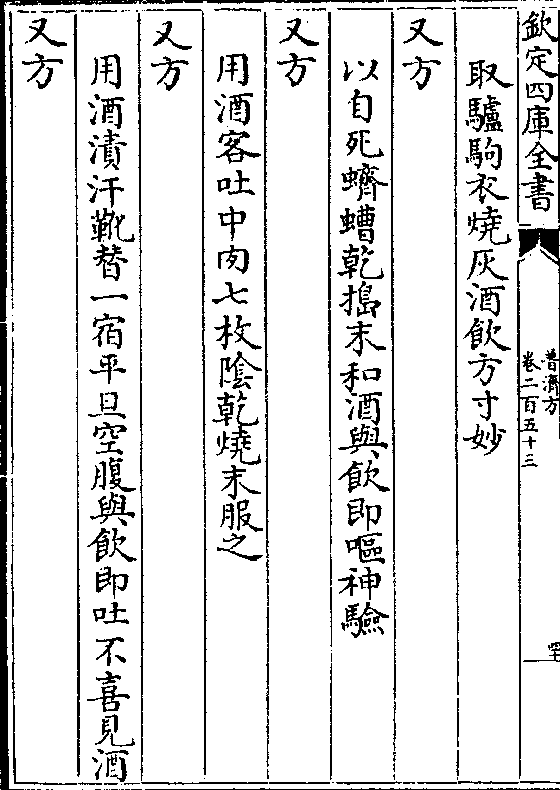 欽定四庫全書
普濟方
卷二百五十三
取驢駒衣燒灰酒飲方寸妙
又方
以自死蠐螬乾搗末和酒與飲即嘔神驗
又方
用酒客吐中肉七枚陰乾燒末服之
又方
用酒漬汗靴替一宿平旦空腹與飲即吐不喜見酒
又方